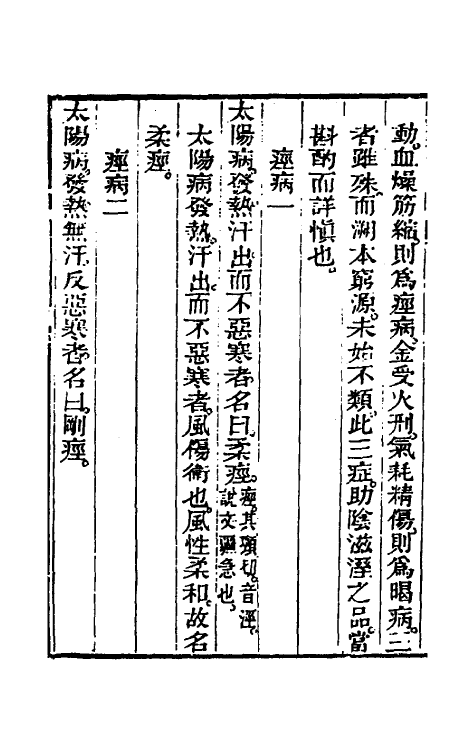 動。血燥筋縮。則爲痙病。金受火刑。氣耗精傷。則爲暍病。三
者雖殊。而溯本窮源。未始不類。此三症。助陰滋溼之品。當
斟酌而詳愼也。
痙病一
太陽病。發熱汗出而不惡寒者。名曰柔痙。痙。其頸切。音涇。說文彊急也。
太陽病發熱。汗出。而不惡寒者。風傷衞也。風性柔和。故名
柔痙。
痙病二
太陽病。發熱無汗。反惡寒者。名曰剛痙。